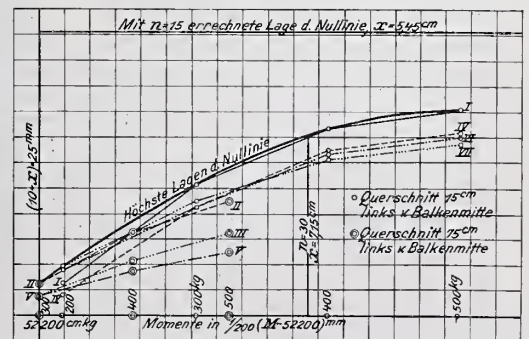 Mit n=15 errechnete Lage d. Nullinie, x=5,45cm
Höchste Lagen d. Nullinie
(10-x)=25mm
I
IV
III
VII
II
III
V
II
V
I
IV
n=30
x=7,15cm
○ Querschnitt 15cm
links v Balkenmitte
◎ Querschnitt 75cm
links v Balkenmitte
300
200
400
300kg
500
400
500kg
52200 cmkg
Momente in 1/200 (M-52200)mm